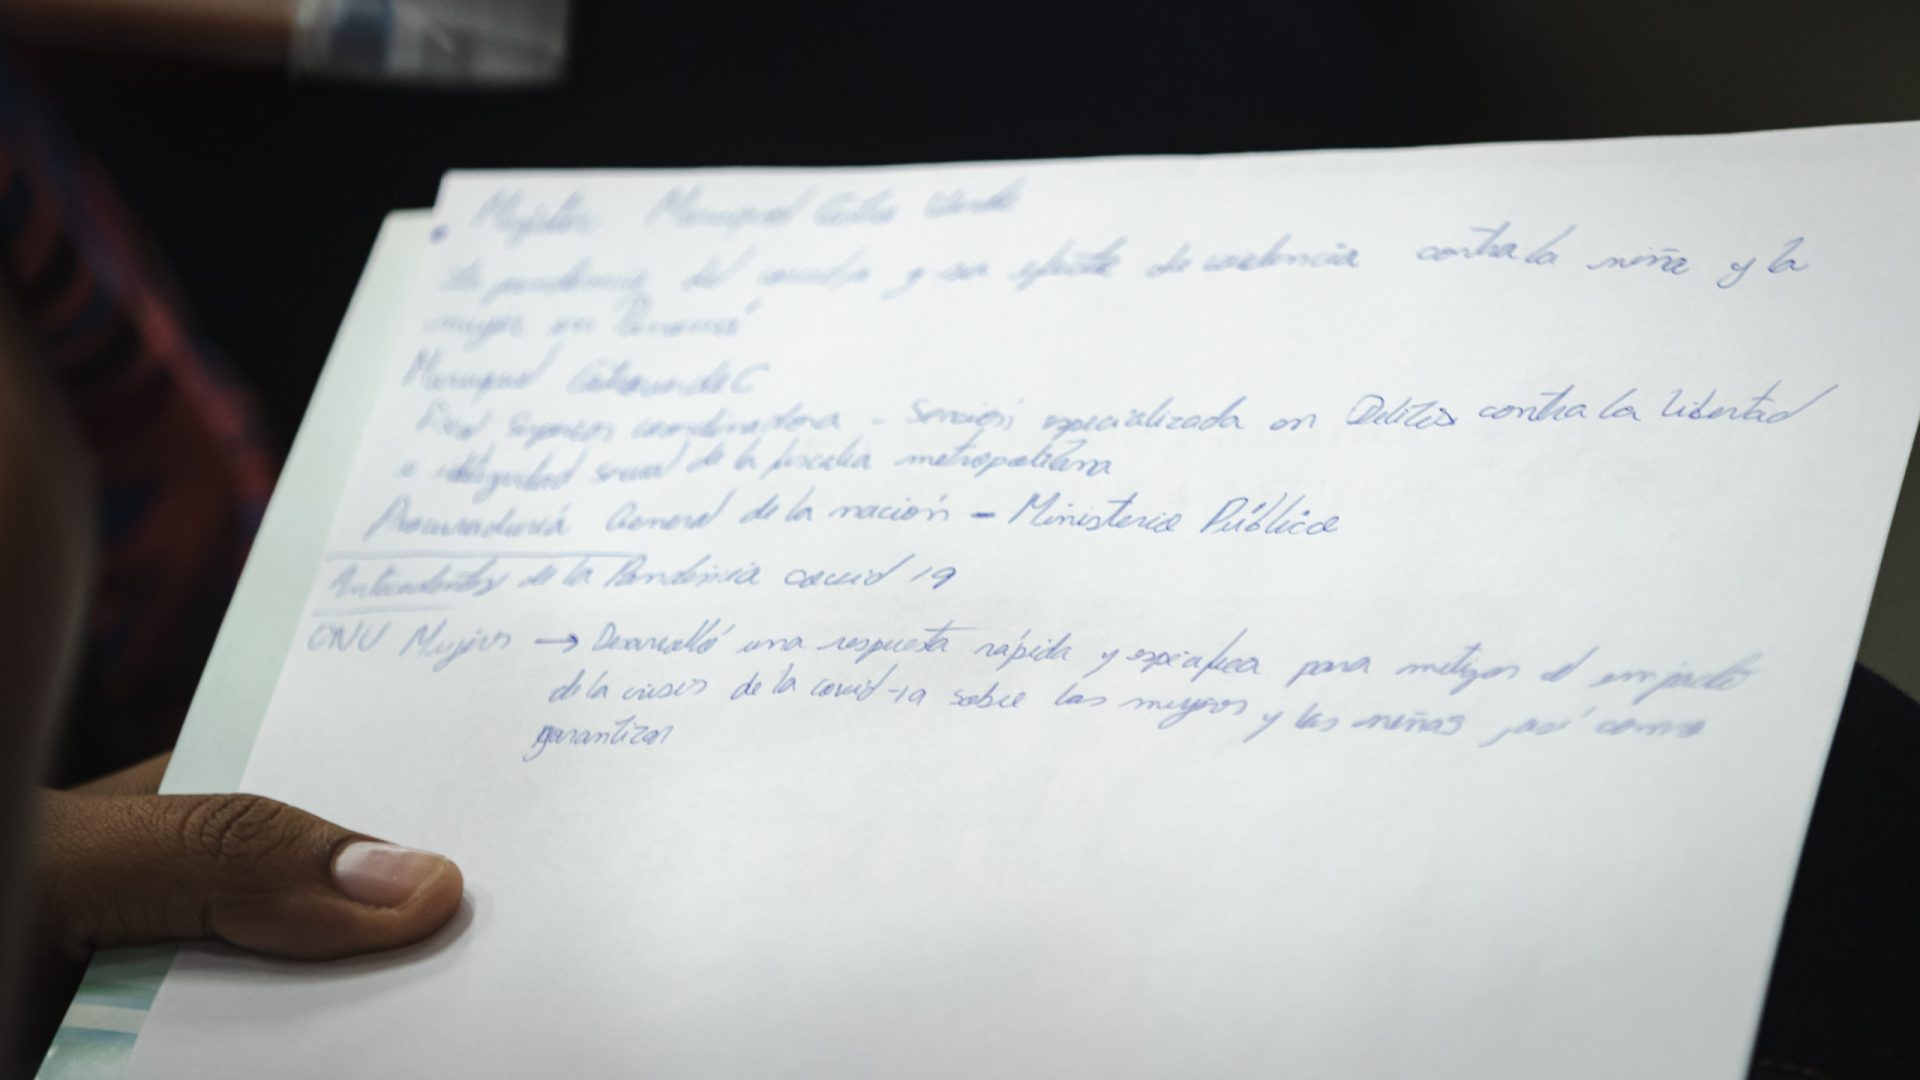 y sus efectos de violencia contra la niña y la
mujer en Panamá
Maruquel
coordinadora - Sección especializada en Delitos contra la libertad
e integridad sexual de la fiscalía metropolitana
Procuraduría General de la nación - Ministerio Público
Antecedentes de la Pandemia covid 19
ONU Mujeres → Desarrolló una respuesta rápida y específica para mitigar el impacto
de la crisis de la covid-19 sobre las mujeres y las niñas, así como
garantizar